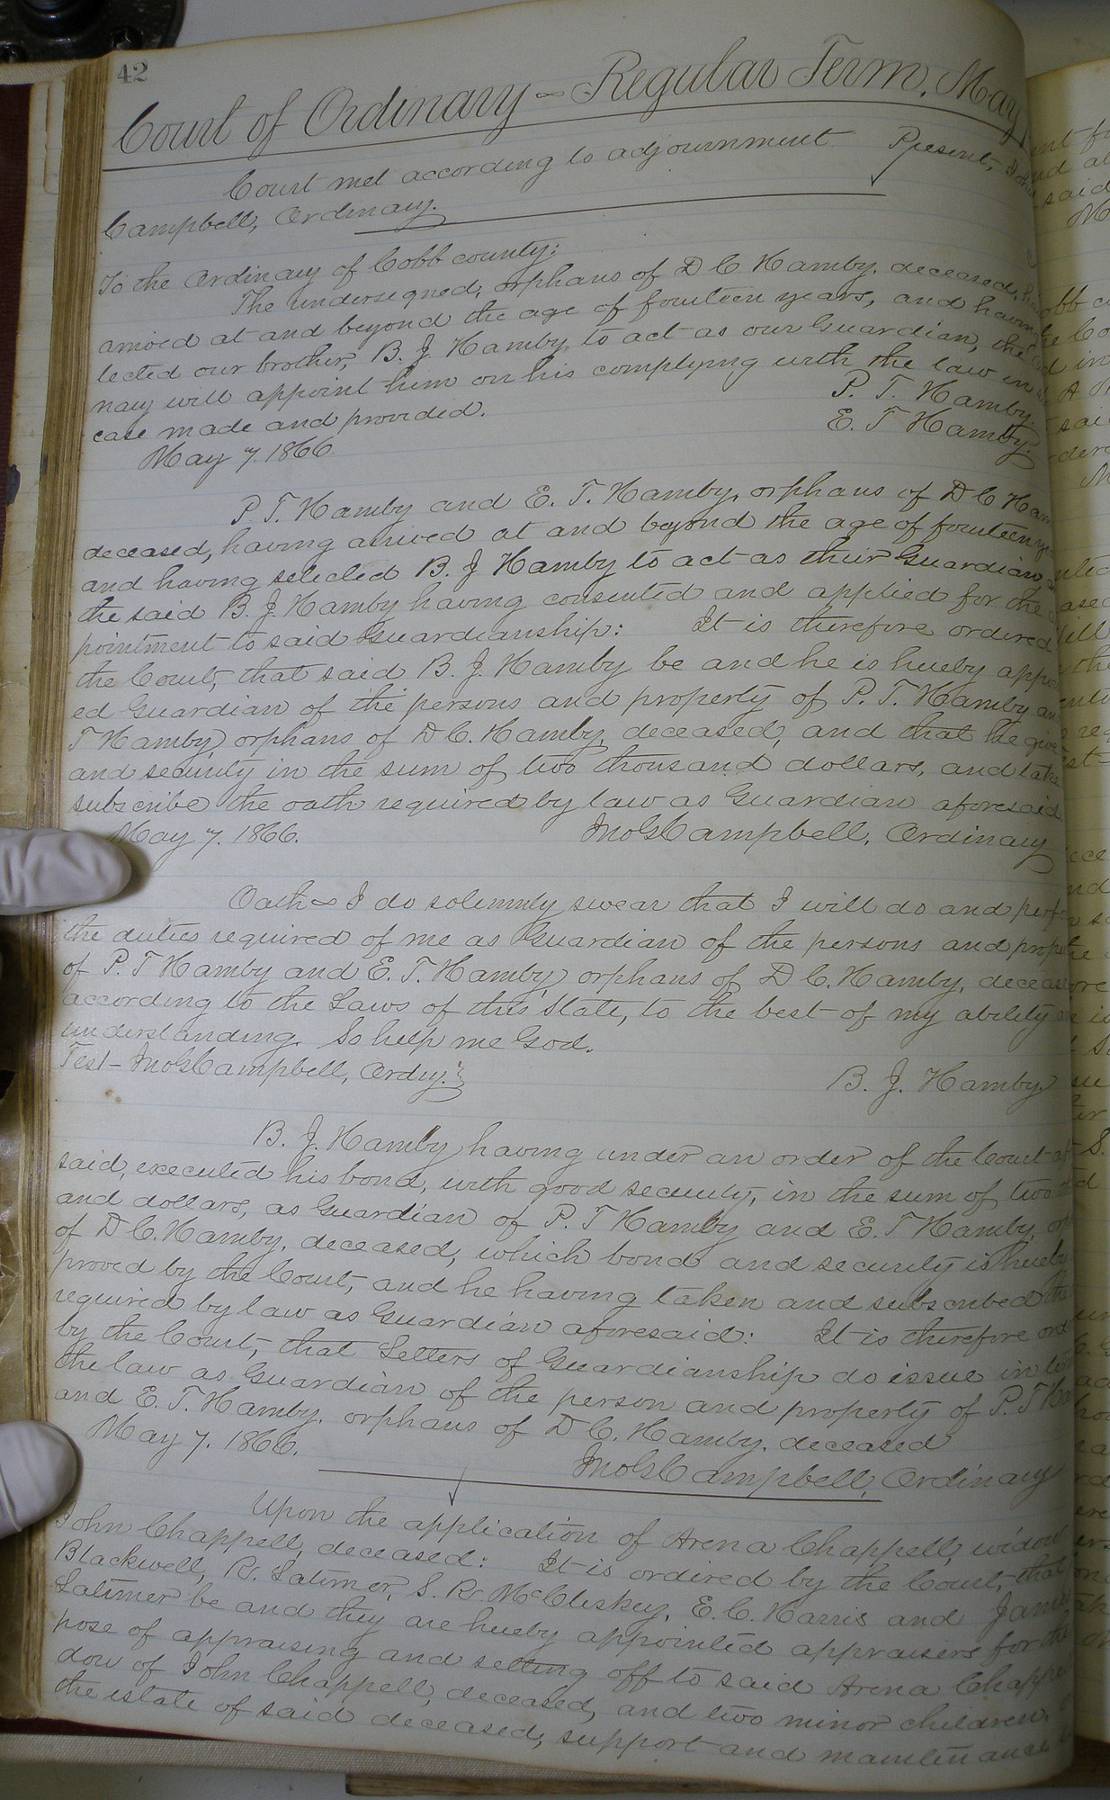 42
Court of Ordinary - Regular Term, May
Court met according to adjournment Present,
Campbell, Ordinary.
To the Ordinary of Cobb county:
The undersigned, orphans of D C Hamby, deceased,
arrived at and beyond the age of fourteen years, and having
lected our brother, B. J. Hamby, to act as our Guardian, the
nary will appoint him on his complying with the law in
case made and provided. P. T. Hamby
May 7. 1866 E. T Hamby
P T. Hamby and E. T. Hamby, orphans of D C Ham
deceased, having arrived at and beyond the age of fourteen
and having selected B. J. Hamby to act as their Guardian,
the said B. J. Hamby having consented and applied for the
pointment to said Guardianship: It is therefore ordered
the Court, that said B. J. Hamby be and he is hereby appo
ed Guardian of the persons and property of P. T. Hamby an
T Hamby orphans of D C. Hamby, deceased, and that he give
and security in the sum of two thousand dollars, and take
subscribe the oath required by law as Guardian aforesaid
May 7. 1866. Jno G Campbell, Ordinary
Oath - I do solemnly swear that I will do and perfo
the duties required of me as Guardian of the persons and prope
of P. T Hamby and E. T. Hamby orphans of D C. Hamby, deceas
according to the Laws of this State, to the best of my ability
understanding. So help me God.
Test - Jno G Campbell, Ordry. B. J. Hamby
B. J. Hamby having under an order of the Court af
said, executed his bond, with good security, in the sum of two
and dollars, as Guardian of P. T Hamby and E. T Hamby,
of D C. Hamby, deceased, which bond and security is hereby
proved by the Court, and he having taken and subscribed the
required by law as Guardian aforesaid: It is therefore ord
by the Court, that Letters of Guardianship do issue in
the law as Guardian of the person and property of P. T
and E. T. Hamby, orphans of D C. Hamby, deceased
May 7. 1866. Jno G Campbell, Ordinary
Upon the application of Arena Chappell, widow
John Chappell, deceased: It is ordered by the Court, that
Blackwell, R. Latimer, S. R. McCleskey, E. C. Harris and James
Latimer be and they are hereby appointed appraisers for the
pose of appraising and setting off to said Arena Chappe
dow of John Chappell, deceased, and two minor children
the estate of said deceased, support and maintenance